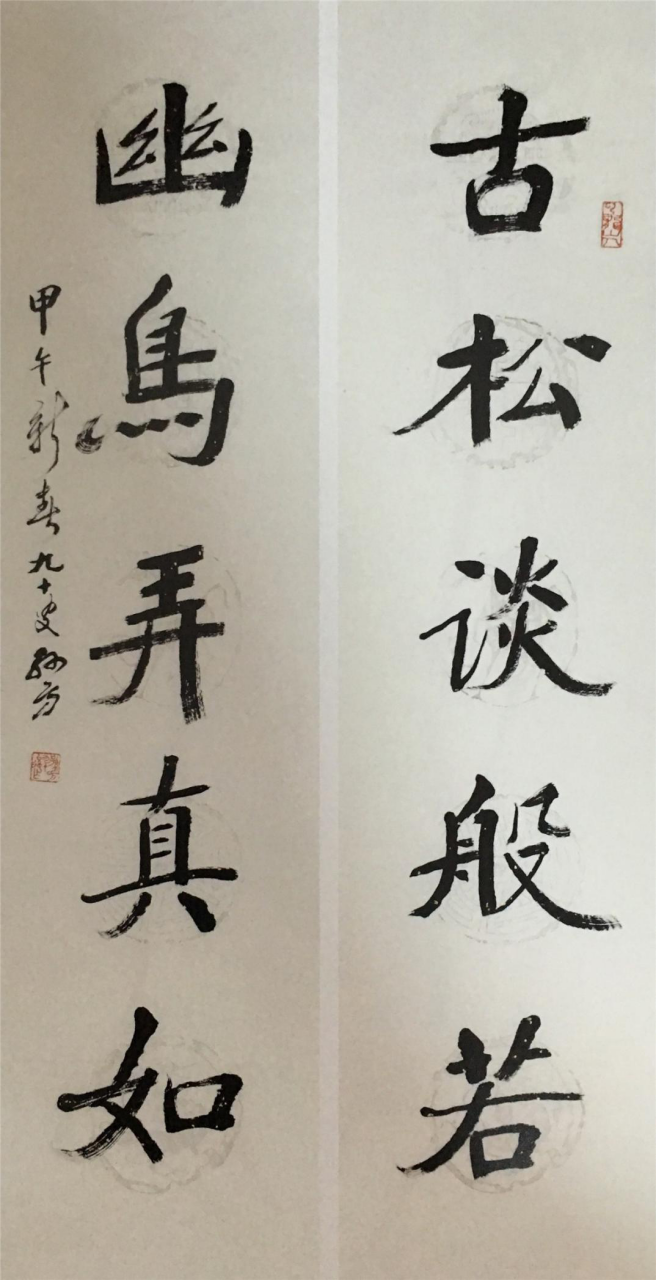 古松谈般若
幽鸟弄真如
甲午新春九十叟孙方